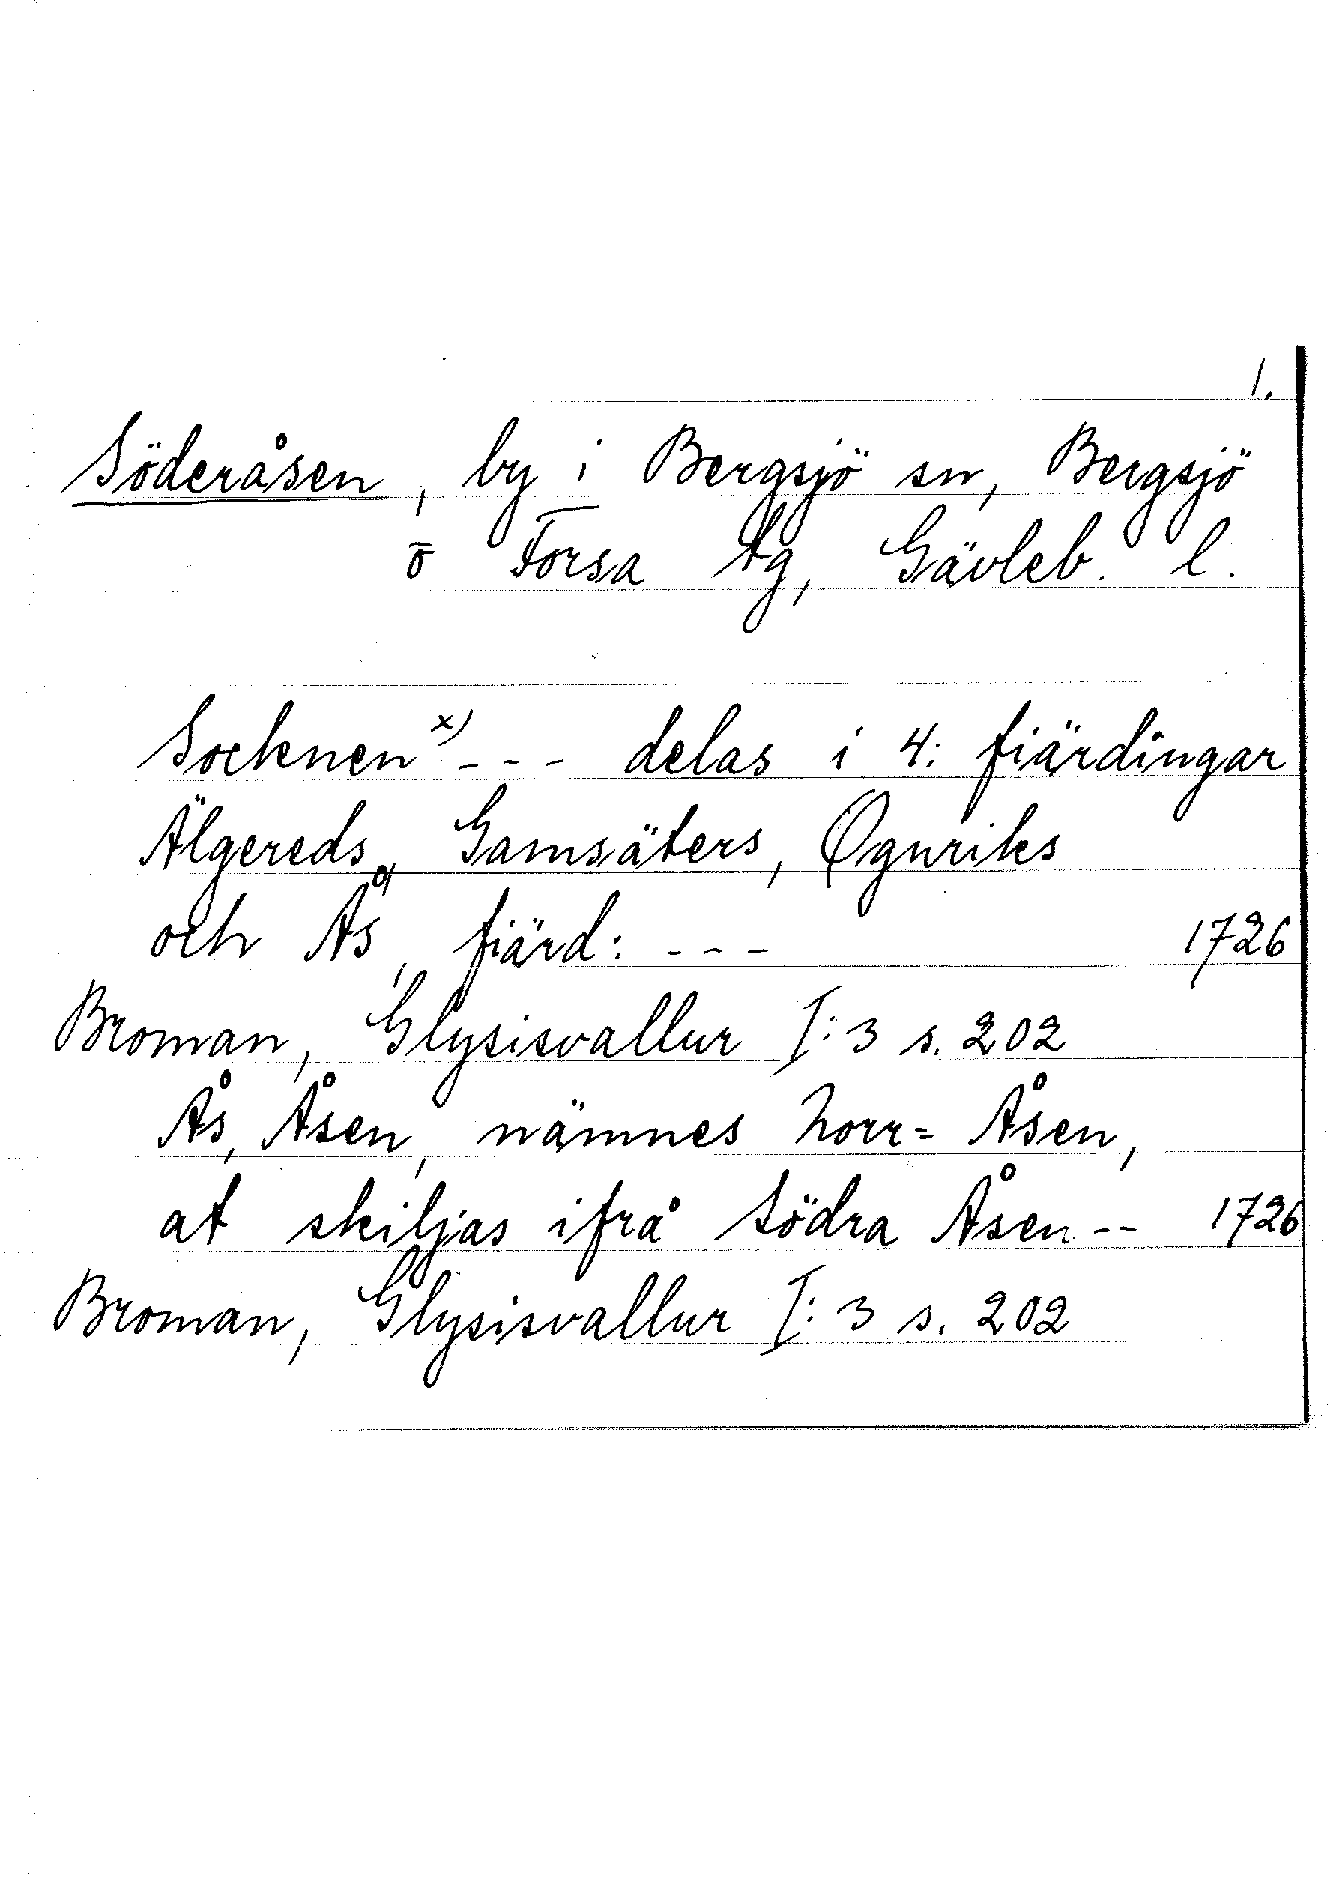 1.
Söderåsen, by i Bergsjö sn, Bergsjö
o Forsa tg, Gävleb. l.
Socknen x) --- delas i 4: fiärdingar
Älgereds, Gamsäters, Øgnriks
och Ås, fiärd: --- 1726
Broman, Glysisvallur I:3 s. 202
Ås, Åsen, nämnes Norr= Åsen,
at skiljas ifrå Södra Åsen -- 1726
Broman, Glysisvallur I:3 s. 202